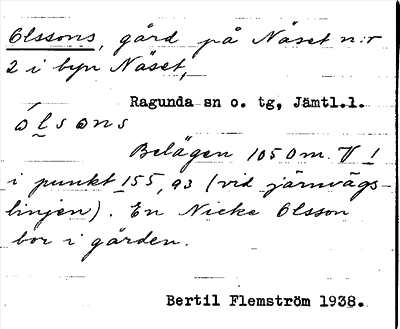 Olssons, gård på Näset n:r
2 i byn Näset,
Ragunda sn o. tg, Jämtl.l.
ólsons
Belägen 1050m. V 1
i punkt 155,93 (vid järnvägs-
linjen). En Nicke Olsson
bor i gården.
Bertil Flemström 1938.